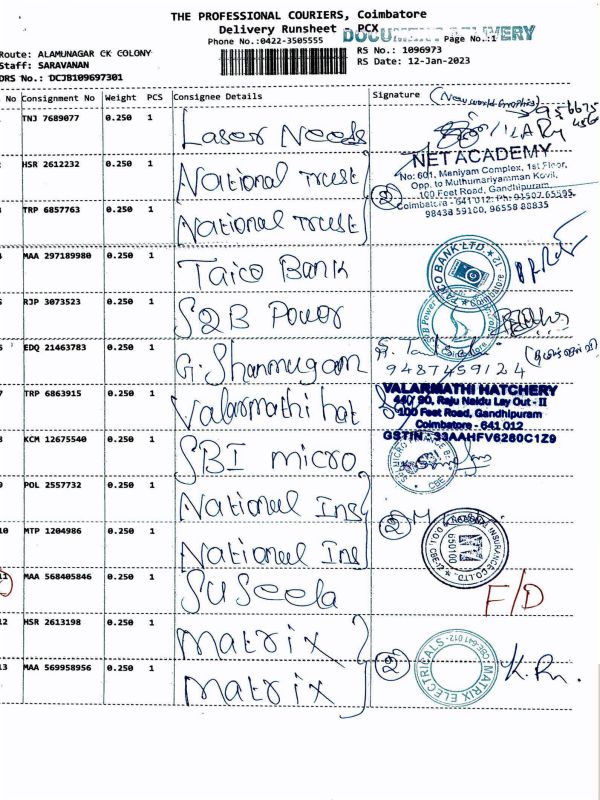 THE PROFESSIONAL COURIERS, Coimbatore
Delivery Runsheet - PCX
DOCUMENT DELIVERY
Phone No.:0422-3505555
Page No.:1
Route: ALAMUNAGAR CK COLONY
RS No.: 1096973
Staff: SARAVANAN
RS Date: 12-Jan-2023
DRS No.: DCJB109697301
No Consignment No Weight PCS Consignee Details Signature
TNJ 7689077 0.250 1 Laser Needs
HSR 2612232 0.250 1 National Trust
NET ACADEMY
No: 601, Maniyam Complex, 1st Floor,
Opp. to Muthumariyamman Kovil,
100 Feet Road, Gandhipuram
Coimbatore - 641 012. Ph:
98438 59100, 96558 88835
TRP 6857763 0.250 1 National Trust 2
MAA 297189980 0.250 1 Taico Bank
TAICO BANK LTD Coimbatore - 12
RJP 3073523 0.250 1 S2B Power
EDQ 21463783 0.250 1 G. Shanmugam
9487459124
7 TRP 6863915 0.250 1 Valarmathi hat
VALARMATHI HATCHERY
440/90, Raju Naidu Lay Out - II
100 Feet Road, Gandhipuram
Coimbatore - 641 012
GSTIN : 33AAHFV6280C1Z9
KCM 12675540 0.250 1 SBI micro
POL 2557732 0.250 1 National Ins
10 MTP 1204986 0.250 1 National Ins 2
650100
11 MAA 568405846 0.250 1 Suseela F/D
12 HSR 2613198 0.250 1 matrix
13 MAA 569958956 0.250 1 matrix 2
MATRIX ELECTRICALS CBE-641 012